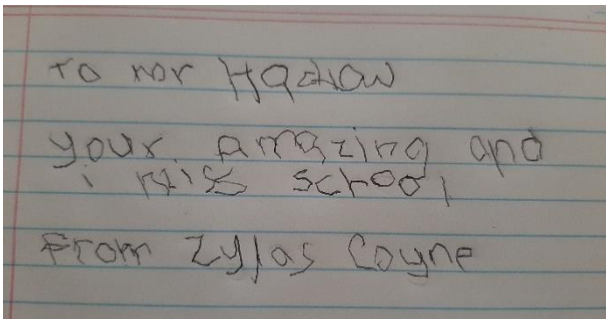 To mr Hadlow
your amazing and
i miss school,
From Zylas Coyne